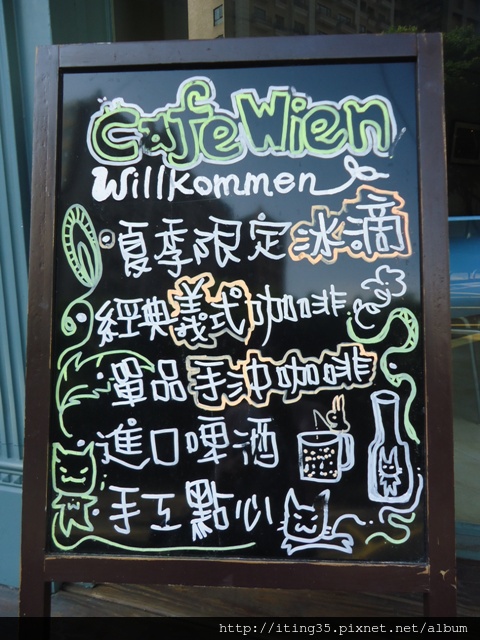 Cafe Wien
Willkommen
夏季限定冰滴
經典義式咖啡
單品手沖咖啡
進口啤酒
手工點心
http://iting35.pixnet.net/album